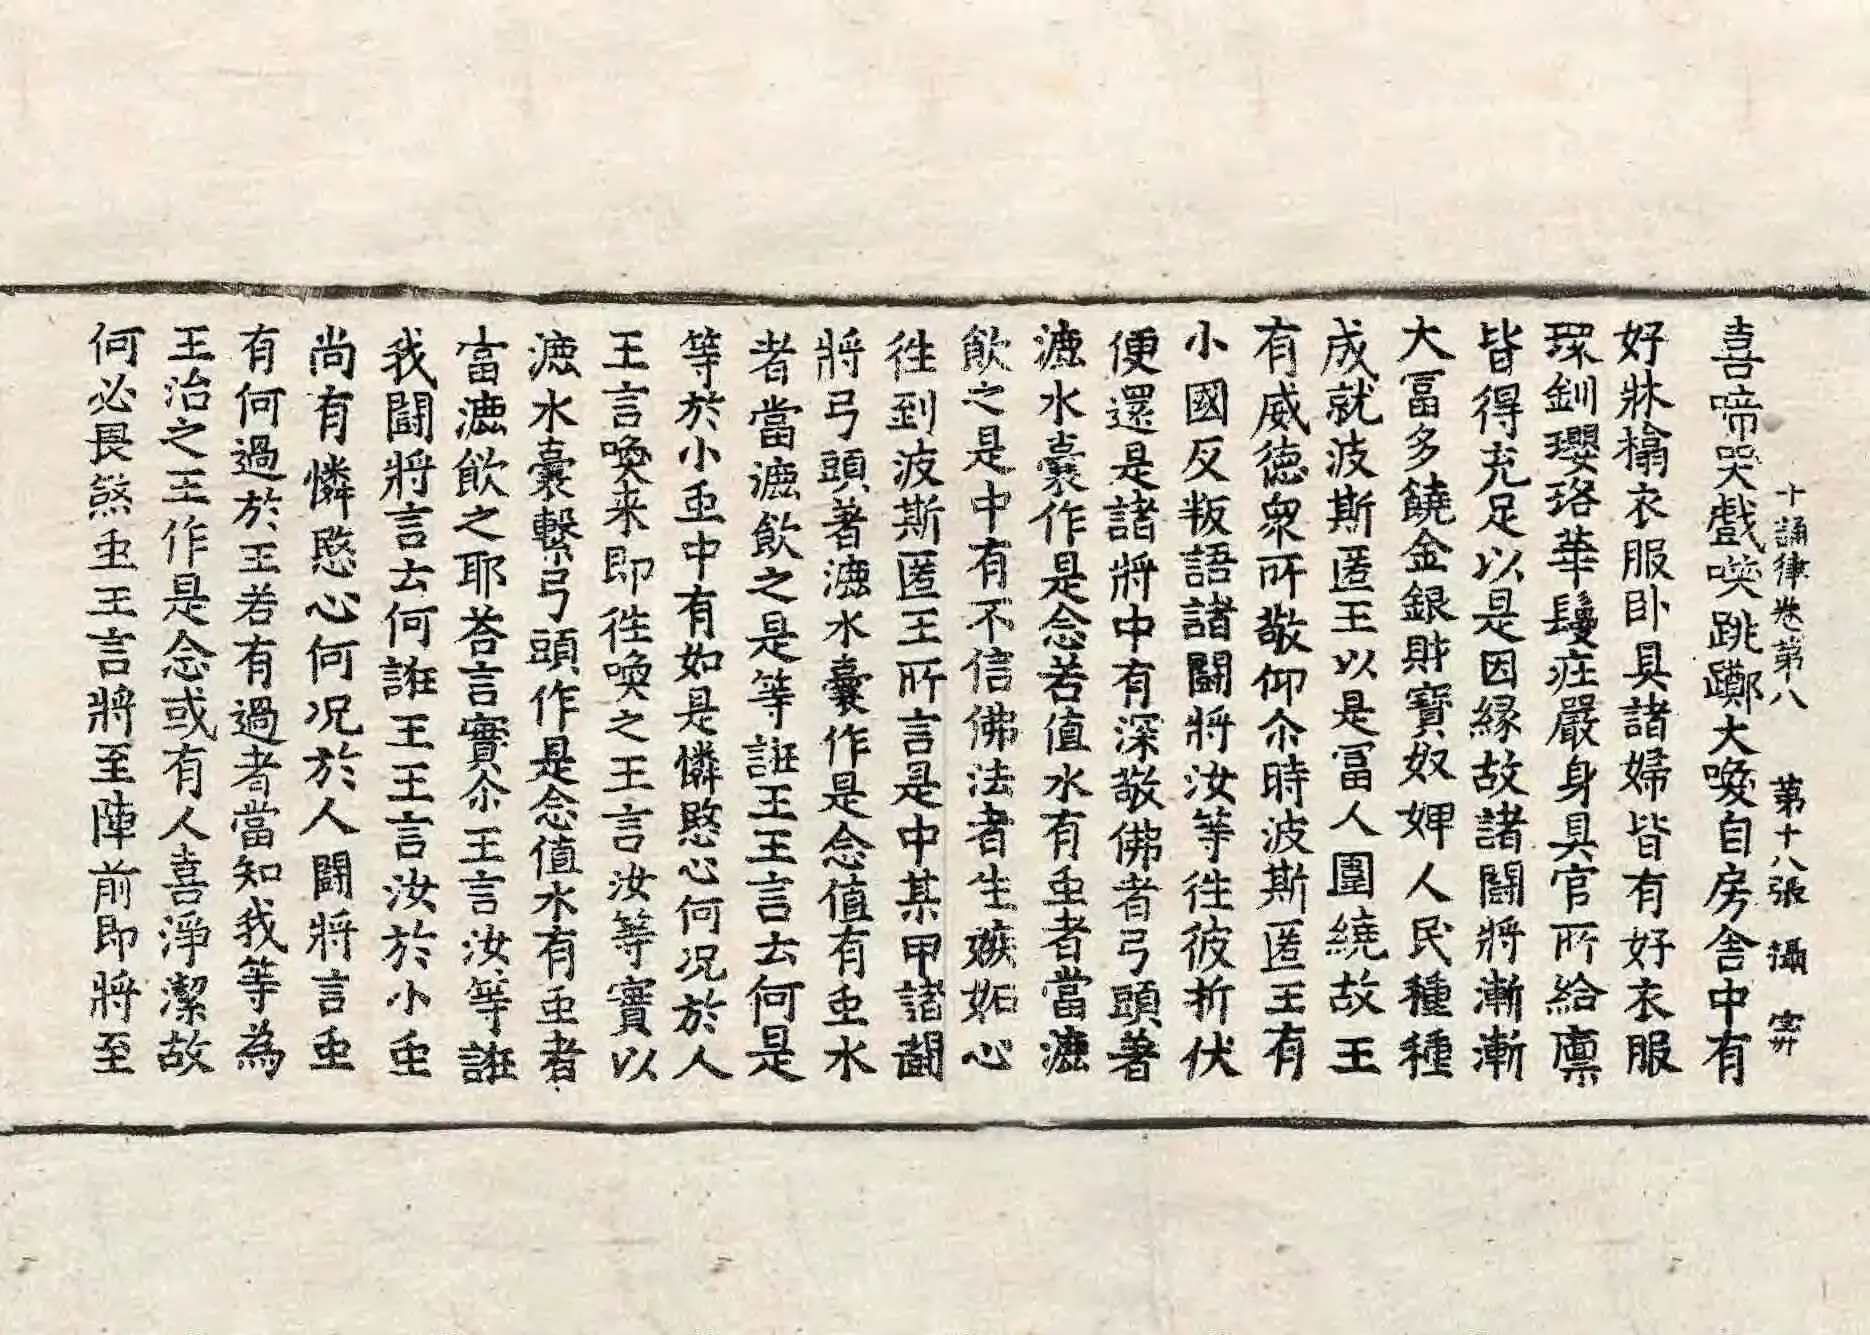 十誦律卷第八　第十八張　攝　
喜啼哭戲唉跳躑大喚自房舍中有
好牀榻衣服卧具諸婦皆有好衣服
環釧瓔珞華鬘莊嚴身具官所給廪
皆得充足以是因緣故諸鬪將漸漸
大冨多饒金銀財寶奴婢人民種種
成就波斯匿王以是冨人圍繞故王
有威德衆所敬仰尒時波斯匿王有
小國反叛語諸鬪將汝等往彼折伏
便還是諸將中有深敬佛者弓頭著
漉水囊作是念若值水有䖝者當漉
飲之是中有不信佛法者生嫉妬心
往到波斯匿王所言是中某甲諸鬪
將弓頭著漉水囊作是念值有䖝水
者當漉飲之是等誑王王言云何是
等於小䖝中有如是憐愍心何况於人
王言喚来即往喚之王言汝等實以
漉水囊繫弓頭作是念值水有䖝者
當漉飲之耶荅言實尒王言汝等誑
我鬪將言云何誑王王言汝於小䖝
尚有憐愍心何况於人鬪將言䖝
有何過於王若有過者當知我等為
王治之王作是念或有人喜淨潔故
何必畏煞䖝王言將至陣前即將至